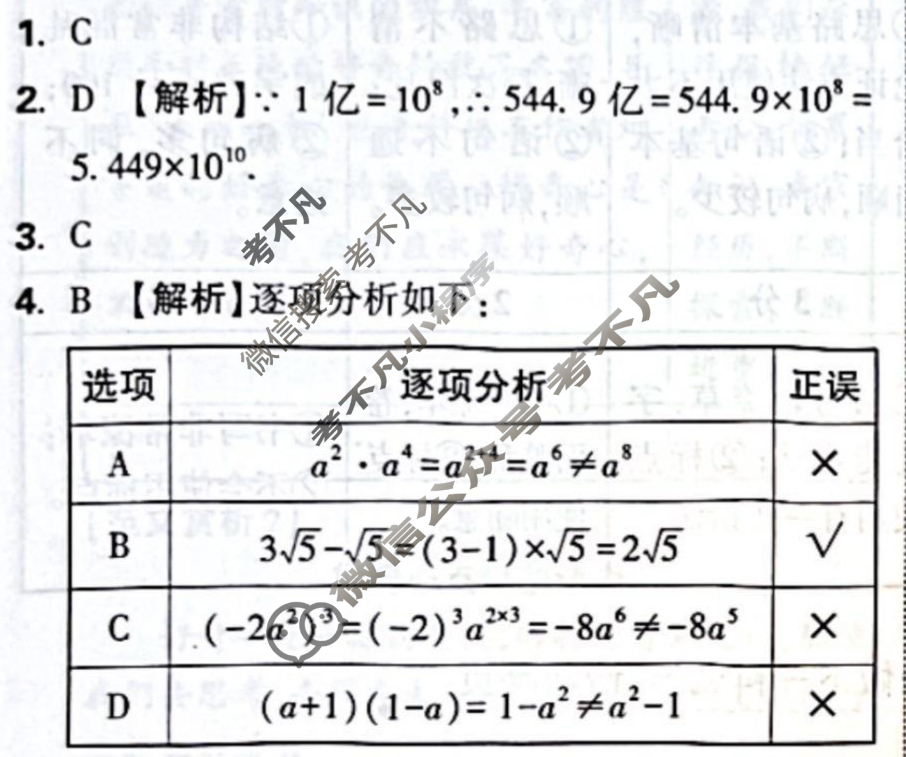 1. C
2. D 【解析】∵ 1 亿=10⁸,∴ 544. 9 亿=544. 9×10⁸=
5. 449×10¹⁰.
3. C
4. B 【解析】逐项分析如下:
选项 逐项分析 正误
A a²·a⁴=a²⁺⁴=a⁶≠a⁸ ×
B 3√5-√5=(3-1)×√5=2√5 √
C (-2a²)³=(-2)³a²ˣ³=-8a⁶≠-8a⁵ ×
D (a+1)(1-a)=1-a²≠a²-1 ×
考不凡
微信搜索 考不凡
考不凡·小程序
微信公众号 考不凡